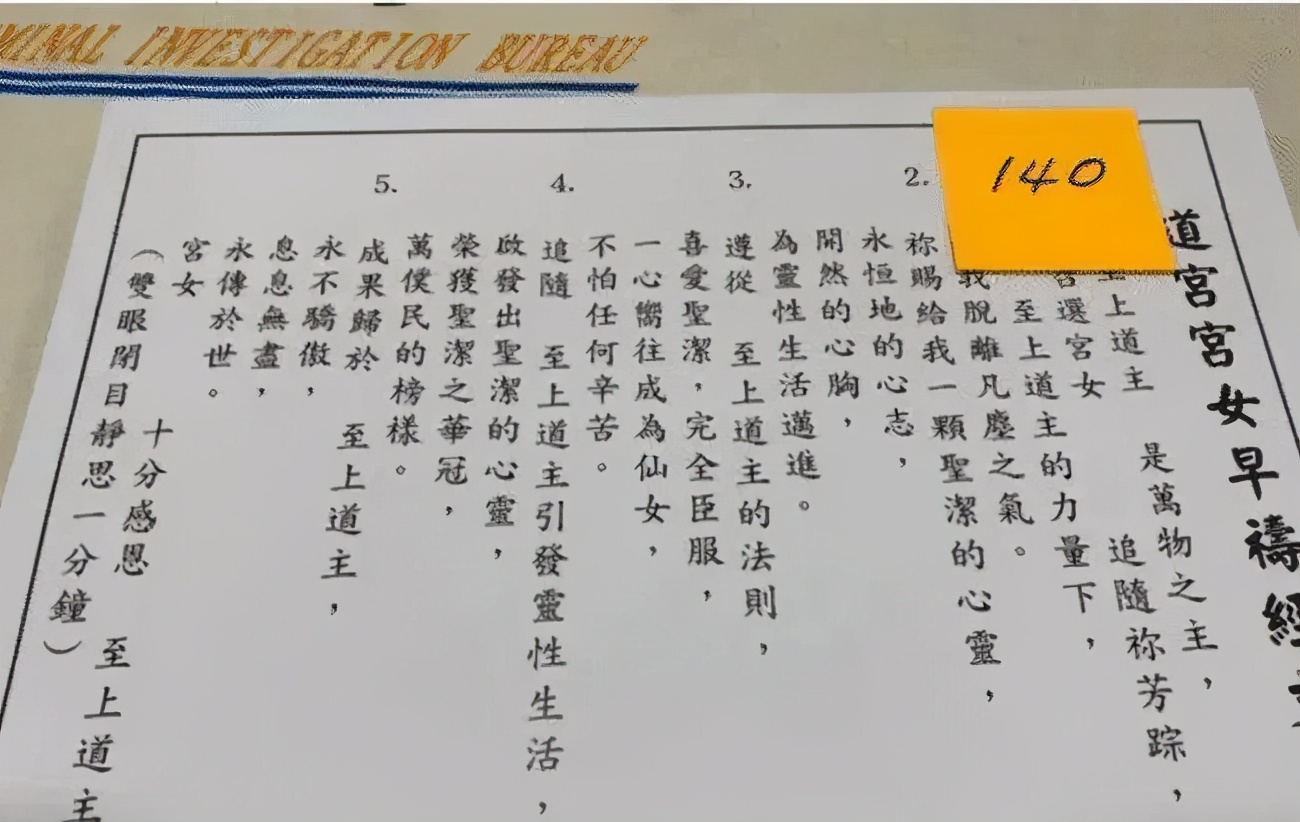 MINAL INVESTIGATION BUREAU
140
道宮宮女早禱經
上道主 是萬物之主，
選宮女 追隨祢芳踪，
至上道主的力量下，
我脫離凡塵之氣。
2. 祢賜給我一顆聖潔的心靈，
永恒地的心志，
開然的心胸，
為靈性生活邁進。
3. 遵從 至上道主的法則，
喜愛聖潔，完全臣服，
一心嚮往成為仙女，
不怕任何辛苦。
4. 追隨 至上道主引發靈性生活，
啟發出聖潔的心靈，
榮獲聖潔之華冠，
萬僕民的榜樣。
5. 成果歸於 至上道主，
永不驕傲，
息息無盡，
永傳於世。
宮女 十分感恩 至上道主
（雙眼閉目靜思一分鐘）